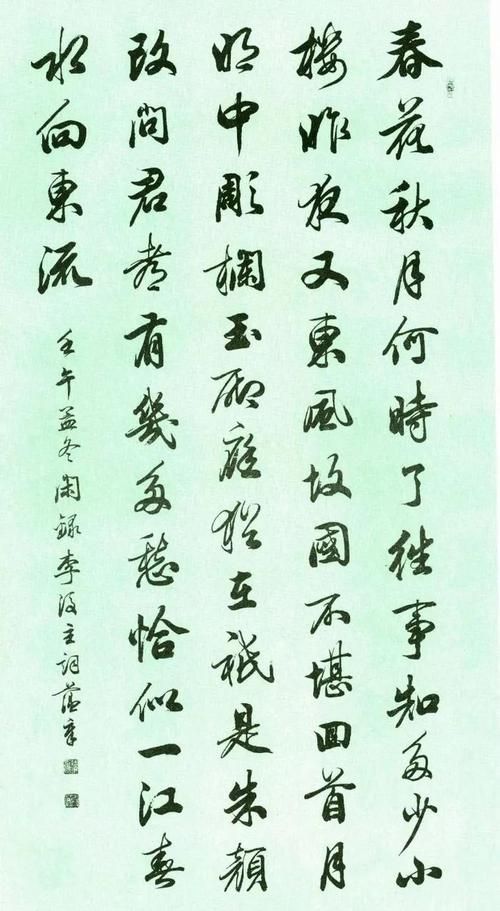 春花秋月何時了往事知多少小
樓昨夜又東風故國不堪回首月
明中彫欄玉砌應猶在祗是朱顏
改問君有幾多愁恰似一江春
水向東流
壬午孟冬閑錄李後主詞